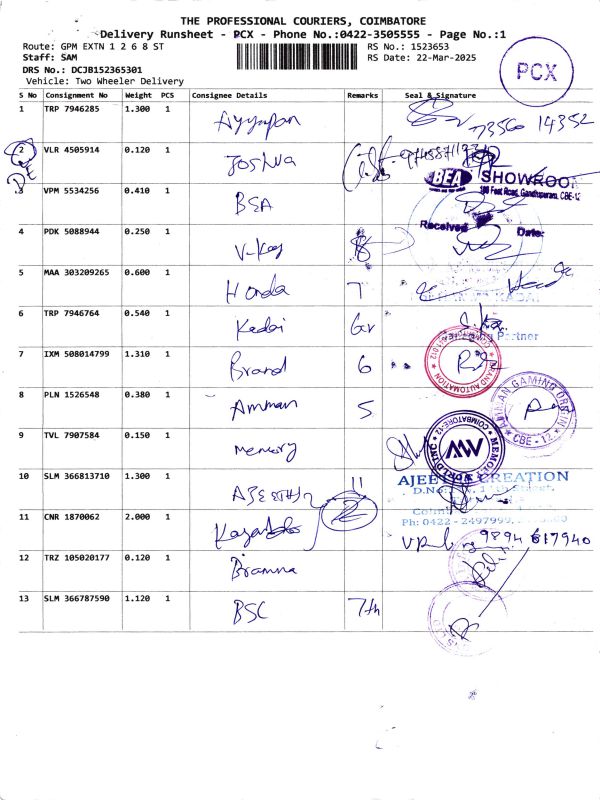 THE PROFESSIONAL COURIERS, COIMBATORE
Delivery Runsheet - PCX - Phone No.:0422-3505555 - Page No.:1
Route: GPM EXTN 1 2 6 8 ST
RS No.: 1523653
Staff: SAM
RS Date: 22-Mar-2025
DRS No.: DCJB152365301
Vehicle: Two Wheeler Delivery
PCX
S No Consignment No Weight PCS Consignee Details Remarks Seal & Signature
1 TRP 7946285 1.300 1 Ayyappan 7356 14352
2 VLR 4505914 0.120 1 Joshua
BEA SHOWROOM
100 Feet Road, Gandhipuram, CBE-12
3 VPM 5534256 0.410 1 BSA
Received Date:
4 PDK 5088944 0.250 1 V-Kay 8
5 MAA 303209265 0.600 1 Honda 7
6 TRP 7946764 0.540 1 Kadai 6v
Partner
7 IXM 508014799 1.310 1 Brand 6
8 PLN 1526548 0.380 1 Amman 5
CBE - 12
9 TVL 7907584 0.150 1 memory
MEMORY WORLD INC COIMBATORE-12
10 SLM 366813710 1.300 1 11
CREATION
Street,
11 CNR 1870062 2.000 1
Ph: 0422 - 2497999,
9894 617940
12 TRZ 105020177 0.120 1
13 SLM 366787590 1.120 1 BSC 7th